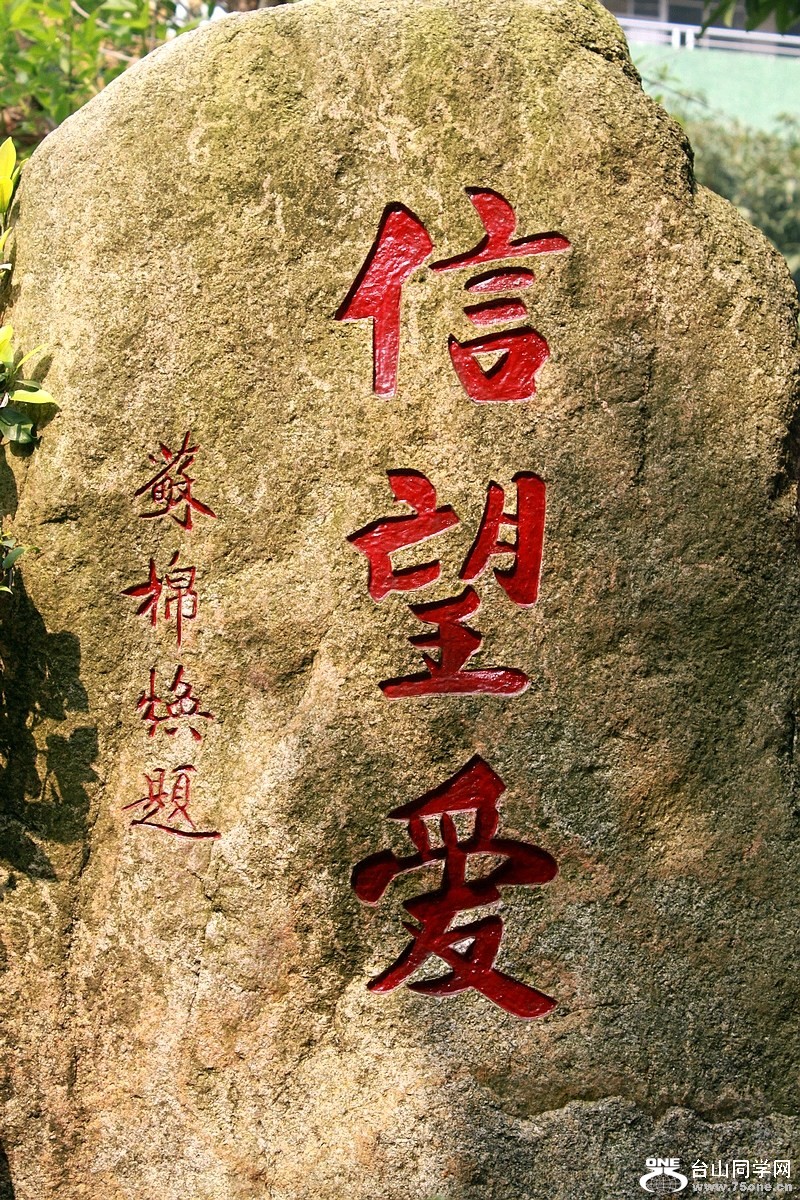 信望爱
蘇棉焕題
ONE 台山同学网
www.75one.cn